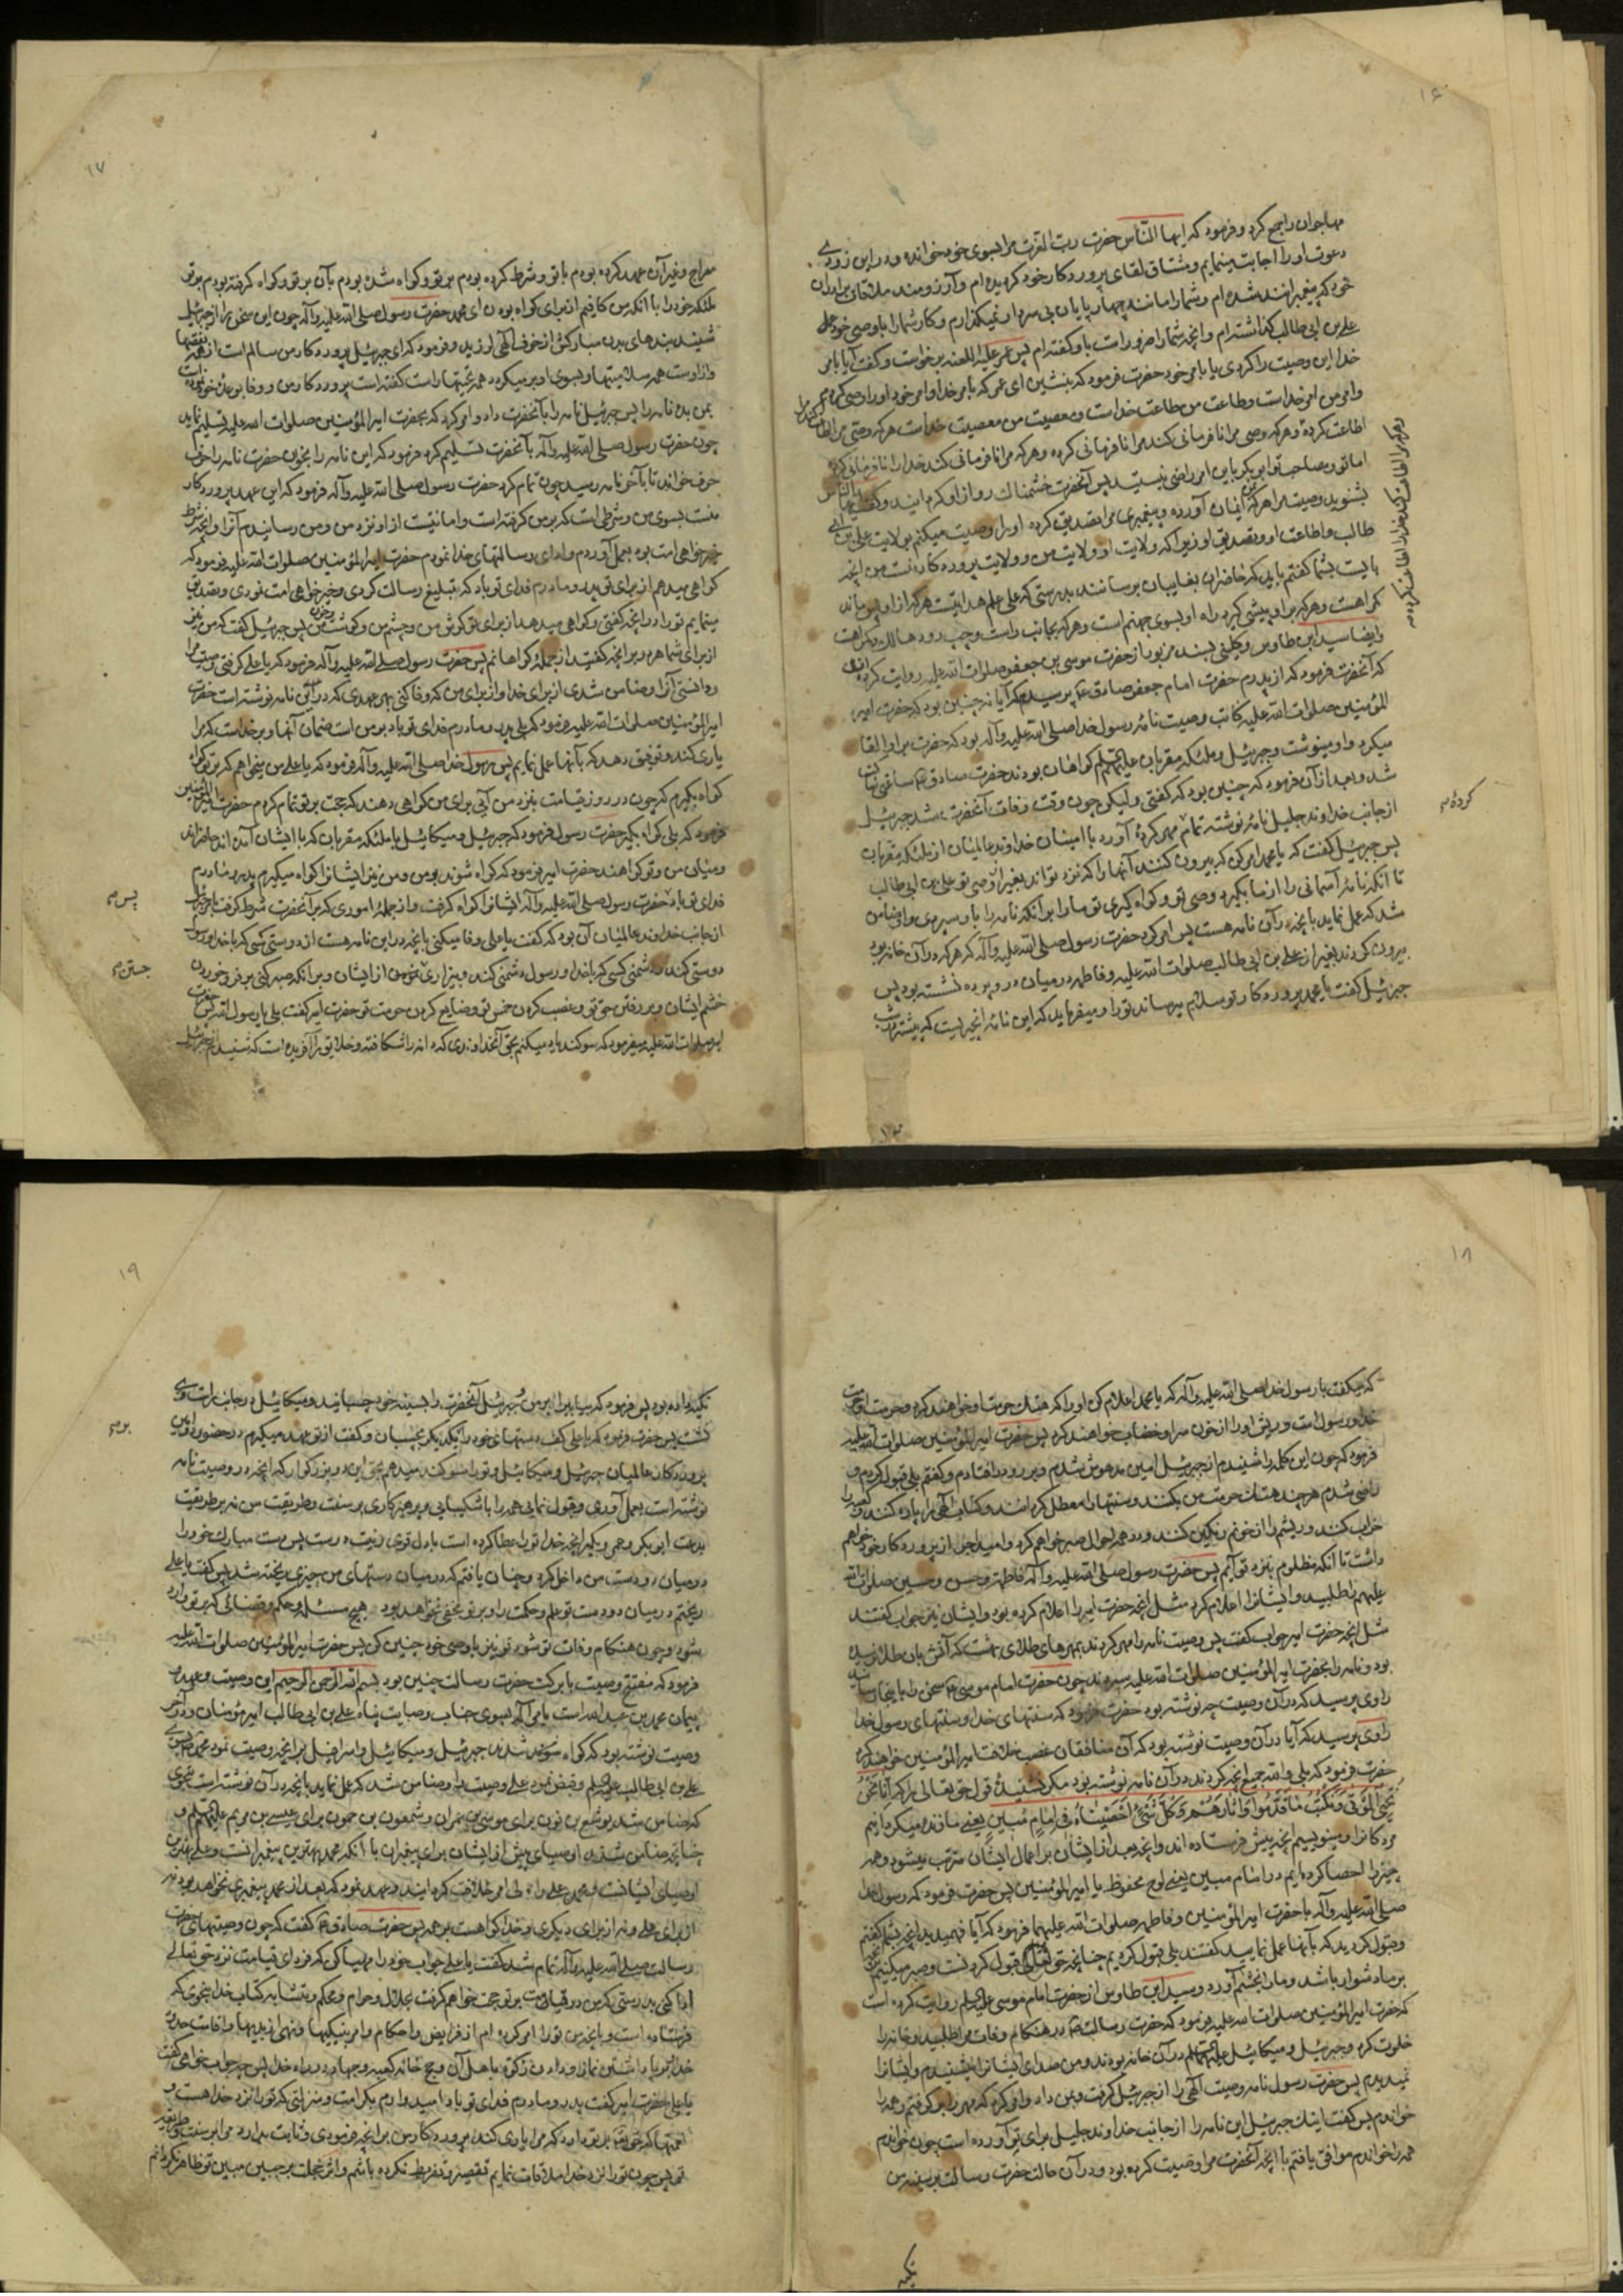 ۱۶
مهاجران را جمع کرد و فرمود که ایها النّاس حضرت رب العزت مرا بسوی خود خوانده و در این زودی
دعوت او را اجابت مینمایم و مشتاق لقای پروردکار خود کردیده ام و آرزومند ملاقات برادران
خود که پیغمبرانند شده ام و شما را مانند چهارپایان بی سر وا نمیکذارم و کار شما را با وصی خود
علی بن ابی طالب کذاشته ام و انچه شما را ضرور است باو کفته ام پس عمر علیه اللعنه برخواست و کفت آیا بامر
خدا این وصیت را کردی یا بامر خود حضرت فرمود که بنشین ای عمر که بامر خدا و امر خود او را وصی کردم
و امر من امر خداست و طاعت من طاعت خداست و معصیت من معصیت خداست هر که وصی مرا اطاعت کند مرا
اطاعت کرده و هر که وصی مرا نافرمانی کند مرا نافرمانی کرده و هر که مرا نافرمانی کند خدا را نافرمانی کرده
و هر که مرا اطاعت کند خدا را اطاعت کرده
اما تو و صاحب تو ابو بکر باین امر راضی نیستید پس آنحضرت خشمناك رو از او کردانید و کفت ایها النّاس
بشنوید وصیت مرا هر که بمن ایمان آورده و پیغمبری مرا تصدیق کرده او را وصیت میکنم بولایت علی بن ابی
طالب و اطاعت او و تصدیق او زیرا که ولایت او ولایت من و ولایت پروردکار منست من انچه
بایست بشما کفتم باید که حاضران بغایبان برسانند بدرستی که علی علم هدایتست هر که از او پس ماند
کمراهست و هر که بر او پیشی کیرد راه او بسوی جهنم است و هر که بجانب راست و چپ رود هالك و کمراهست
و ایضا سید ابن طاوس و کلینی بسند مزبور از حضرت موسی بن جعفر صلوات الله علیه روایت کرده اند
که آنحضرت فرمود که از پدرم حضرت امام جعفر صادق ع پرسیدم که آیا نه چنین بود که حضرت امیر
المؤمنین صلوات الله علیه کاتب وصیت نامه رسول خدا صلی الله علیه وآله بود که حضرت بر او القا
میکرد و او مینوشت و جبرئیل و ملئکه مقربان علیهم السلم کواهان بودند حضرت صادق ع ساعتی ساکت
شد و بعد از آن فرمود که چنین بود که کفتی ولیکن چون وقت وفات آنحضرت شد جبرئیل
از جانب خداوند جلیل نامه نوشته تمام مهر کرده آورد با امینان خداوند عالمیان از ملئکه مقربان
کرده
پس جبرئیل کفت که یا محمد امر کن که بیرون کنند آنها را که نزد تواند بغیر از وصی تو علی بن ابی طالب
تا آنکه نامه آسمانی را از ما بکیرد وصی تو و کواه کیری تو ما را بر آنکه نامه را باو سپردی و او ضامن
شد که عمل نماید بانچه در آن نامه هست پس امر کرد حضرت رسول صلی الله علیه وآله که هر که در آن خانه بود
بیرون کردند بغیر از علی بن ابی طالب صلوات الله علیه و فاطمه در میان در و پرده نشسته بود پس
جبرئیل کفت یا محمد پروردکار تو سلام میرساند تو را و میفرماید که این نامه انچه ایست که پیشتر در شب
۱۷
معراج و غیر آن عهد کرده بودم با تو و شرط کرده بودم بر تو و کواه شده بودم بآن بر تو و کواه کرفته بودم بر تو
ملئکه خود را با آنکه من کافیم از برای کواه بودن ای محمد حضرت رسول صلی الله علیه وآله چون این سخن را از جبرئیل
شنید بندهای بدن مبارکش از خوف الهی لرزید و فرمود که ای جبرئیل پروردکار من سالم است از همه نقصها
و از اوست همه سلامتیها و بسوی او بر میکردد همه تحیتها راست کفته است پروردکار من و وفا بوعده خود نموده است
بمن بده نامه را پس جبرئیل نامه را بآنحضرت داد و امر کرد که بحضرت امیر المؤمنین صلوات الله علیه تسلیم نماید
چون حضرت رسول صلی الله علیه وآله بآنحضرت تسلیم کرد فرمود که این نامه را بخوان حضرت نامه را حرف
حرف خواند تا بآخر نامه رسید چون تمام کرد حضرت رسول صلی الله علیه وآله فرمود که این عهد پروردکار
منست بسوی من و شرطی است که بر من کرفته است و امانتیست از او نزد من و من رسانیدم آنرا و انچه شرط
خیرخواهی امت بود بعمل آوردم و ادای رسالتهای خدا نمودم حضرت امیر المؤمنین صلوات الله علیه فرمود که
کواهی میدهم از برای تو پدر و مادرم فدای تو باد که تبلیغ رسالت کردی و خیرخواهی امت نمودی و تصدیق
مینمایم تو را در انچه کفتی و کواهی میدهد از برای تو کوش من و چشم من و کوشت من و خون من پس جبرئیل کفت که من نیز
از برای شما هر دو بر انچه کفتید از جمله کواهانم پس حضرت رسول صلی الله علیه وآله فرمود که یا علی کرفتی وصیت مرا
و دانستی آنرا و ضامن شدی از برای خدا و از برای من که وفا کنی بهر عهدی که در این نامه نوشته است حضرت
امیر المؤمنین صلوات الله علیه فرمود که بلی پدر و مادرم فدای تو باد بر من است ضمان آنها و بر خداست که مرا
یاری کند و توفیق دهد که بآنها عمل نمایم پس رسول خدا صلی الله علیه وآله فرمود که یا علی من میخواهم که بر تو کواه
کواه بکیرم که چون در روز قیامت بنزد من آیی برای من کواهی دهند که حجت بر تو تمام کردم حضرت امیر المؤمنین
فرمود که بلی کواه بکیر حضرت رسول فرمود که جبرئیل و میکائیل با ملئکه مقربان که با ایشان آمده اند حاضرند
و میان من و تو کواهند حضرت امیر فرمود که کواه شوند بر من و من نیز ایشانرا کواه میکیرم پدر و مادرم
فدای تو باد حضرت رسول صلی الله علیه وآله ایشانرا کواه کرفت و از جمله اموری که بر آنحضرت شرط کرفت بامر جبرئیل
پس
از جانب خداوند عالمیان آن بود که کفت یا علی وفا میکنی بانچه در این نامه هست از دوستی کسی که با خدا و رسول
دوستی کند و دشمنی کسی که با خدا و رسول دشمنی کند و بیزاری از ایشان و بر آنکه صبر کنی بر فرو خوردن
جستن
خشم ایشان و بر رفتن حق تو و غصب کردن خمس تو و ضایع کردن حرمت تو حضرت امیر کفت بلی یا رسول الله پس حضرت
امیر صلوات الله علیه میفرمود که سوکند یاد میکنم بحق آنخداوندی که دانه را شکافته و خلایق را آفریده است که شنیدم از جبرئیل
۱۸
که میکفت با رسول خدا صلی الله علیه وآله که یا محمد اعلام کن او را که هتك حرمت او خواهند کرد و حرمت او حرمت
خدا و رسول است و ریش او را از خون سر او خضاب خواهند کرد پس حضرت امیر المؤمنین صلوات الله علیه
فرمود که چون این کلمه را شنیدم از جبرئیل امین مدهوش شدم و بر رو در افتادم و کفتم بلی قبول کردم و
راضی شدم هر چند هتك حرمت من بکنند و سنتها را معطل کردانند و کتاب الهی را پاره کنند و کعبه را
خراب کنند و ریشم را از خونم رنکین کنند و در همه احوال صبر خواهم کرد و امید اجر از پروردکار خود خواهم
داشت تا آنکه مظلوم بنزد تو آیم پس حضرت رسول صلی الله علیه وآله فاطمه و حسن و حسین صلوات الله
علیهم را طلبید و ایشانرا اعلام کرد مثل انچه حضرت امیر را اعلام کرده بود و ایشان نیز جواب کفتند
مثل انچه حضرت امیر جواب کفت پس وصیت نامه را مهر کردند بمهرهای طلای بهشت که آتش بان طلا نرسیده
بود و نامه را بحضرت امیر المؤمنین صلوات الله علیه سپردند چون حضرت امام موسی ع سخن را باینجا رسانید
راوی پرسید که در آن وصیت چه نوشته بود حضرت فرمود که سنتهای خدا و سنتهای رسول خدا
راوی پرسید که آیا در آن وصیت نوشته بود که آن منافقان غصب خلافت امیر المؤمنین خواهند کرد
حضرت فرمود که بلی والله جمیع انچه کردند در آن نامه نوشته بود مکر نشنیده قول حق تعالی را که اِنّا نَحْنُ
نُحْيِي الْمَوْتى وَنَكْتُبُ ما قَدَّمُوا وَآثارَهُمْ وَكُلَّ شَيْءٍ اَحْصَيْناهُ فِي اِمامٍ مُبينٍ یعنی ما زنده میکردانیم
مردکانرا و مینویسیم انچه پیش فرستاده اند و انچه بعد از ایشان بر اعمال ایشان مترتب میشود و همه
چیز را احصا کرده ایم در امام مبین یعنی لوح محفوظ یا امیر المؤمنین پس حضرت فرمود که رسول خدا
صلی الله علیه وآله با حضرت امیر المؤمنین و فاطمه صلوات الله علیهما فرمود که آیا فهمیدید انچه بشما کفتم
و قبول کردید که بآنها عمل نمایید کفتند بلی قبول کردیم چنانچه حق قبول کردنست و صبر میکنیم بر انچه
بر ما دشوار باشد و ما را بخشم آورد و سید ابن طاوس از حضرت امام موسی علیه السلم روایت کرده است
که حضرت امیر المؤمنین صلوات الله علیه فرمود که حضرت رسالت ص در هنکام وفات مرا طلبید و خانه را
خلوت کرد و جبرئیل و میکائیل علیهما السلم در آن خانه بودند و من صدای ایشانرا میشنیدم و ایشانرا
نمیدیدم پس حضرت رسول نامه وصیت الهی را از جبرئیل کرفت و بمن داد و امر کرد که مهر را برکرفتم و همه را
خواندم پس کفت اینك جبرئیل این نامه را از جانب خداوند جلیل برای تو آورده است چون خواندم
همه را خواندم موافق یافتم با انچه آنحضرت مرا وصیت کرده بود و در آن حالت حضرت رسالت بر سینه من
تکیه
۱۹
تکیه داده بود پس فرمود که بیا برابر من و جبرئیل آنحضرت را بسینه خود چسبانید و میکائیل در جانب راست وی
نشست پس حضرت فرمود که یا علی کف دستهای خود را بیکدیکر بچسبان و کفت از تو عهد میکیرم در حضور امین
بر
پروردکار عالمیان جبرئیل و میکائیل و تو را سوکند میدهم بحق این دو بزرکوار که انچه در وصیت نامه
نوشته است بعمل آوری و قبول نمایی همه را با شکیبایی و پرهیزکاری بر سنت و طریقت من نه بر طریقت
بدعت ابو بکر و عمر و بکیر انچه خدا تو را عطا کرده است با دل قوی و نیت درست پس دست مبارك خود را
در میان دو دست من داخل کرد و چنان یافتم که در میان دستهای من چیزی ریخته شد پس کفت یا علی
ریختم در میان دو دست تو علم و حکمت را و بر تو مخفی نخواهد بود هیچ مسئله و حکم و قضائی که بر تو وارد
شود و چون هنکام وفات تو شود تو نیز با وصی خود چنین کن پس حضرت امیر المؤمنین صلوات الله علیه
فرمود که مفتتح وصیت با برکت حضرت رسالت چنین بود بسم الله الرحمن الرحیم این وصیت و عهد و
پیمان محمد بن عبد الله است بامر الهی بسوی جناب وصایت پناه علی بن ابی طالب امیر مؤمنان و در آخر
وصیت نوشته بود که کواه شدند جبرئیل و میکائیل و اسرافیل بر انچه وصیت نمود محمد بسوی
علی بن ابی طالب علیه السلم و قبض نمود علی وصیت او را و ضامن شد که عمل نماید بانچه در آن نوشته است بنحوی
که ضامن شد یوشع بن نون برای موسی بن عمران و شمعون بن حمون برای عیسی بن مریم علیهم السلم و
چنانچه ضامن شدند اوصیای پیش از ایشان برای پیغمبران با آنکه محمد بهترین پیغمبرانست و علی بهترین
اوصیای ایشانست و محمد علی را ولی امر خلافت کردانید و عهد نمود که بعد از محمد پیغمبری نخواهد بود نه
از برای علی و نه از برای دیکری و خدا کواهست بر همه پس حضرت صادق ع کفت که چون وصیتهای حضرت
رسالت صلی الله علیه وآله تمام شد کفت یا علی جواب خود را مهیا کن که فردای قیامت نزد حق تعالی
ادا کنی بدرستی که من در قیامت بر تو حجت خواهم کرفت بحلال و حرام و محکم و متشابه کتاب خدا بنحوی که
فرستاده است و بانچه من تو را امر کرده ام از فرایض و احکام و امر بنیکیها و نهی از بدیها و اقامت حدود
خدا و برپا داشتن نماز و دادن زکوة باهل آن و حج خانه کعبه و جهاد در راه خدا پس چه جواب خواهی کفت
یا علی حضرت امیر کفت پدر و مادرم فدای تو باد امید دارم بکرامت و منزلتی که تو را نزد خدا هست و
نعمتها که حق تعالی بر تو دارد که مرا یاری کند پروردکار من بر انچه فرمودی و ثابت بدارد مرا بر سنت و طریقه
تو پس چون تو را نزد خدا ملاقات نمایم تقصیر و تفریط نکرده باشم و اثر خجلت بر جبین مبین تو ظاهر نکردانم